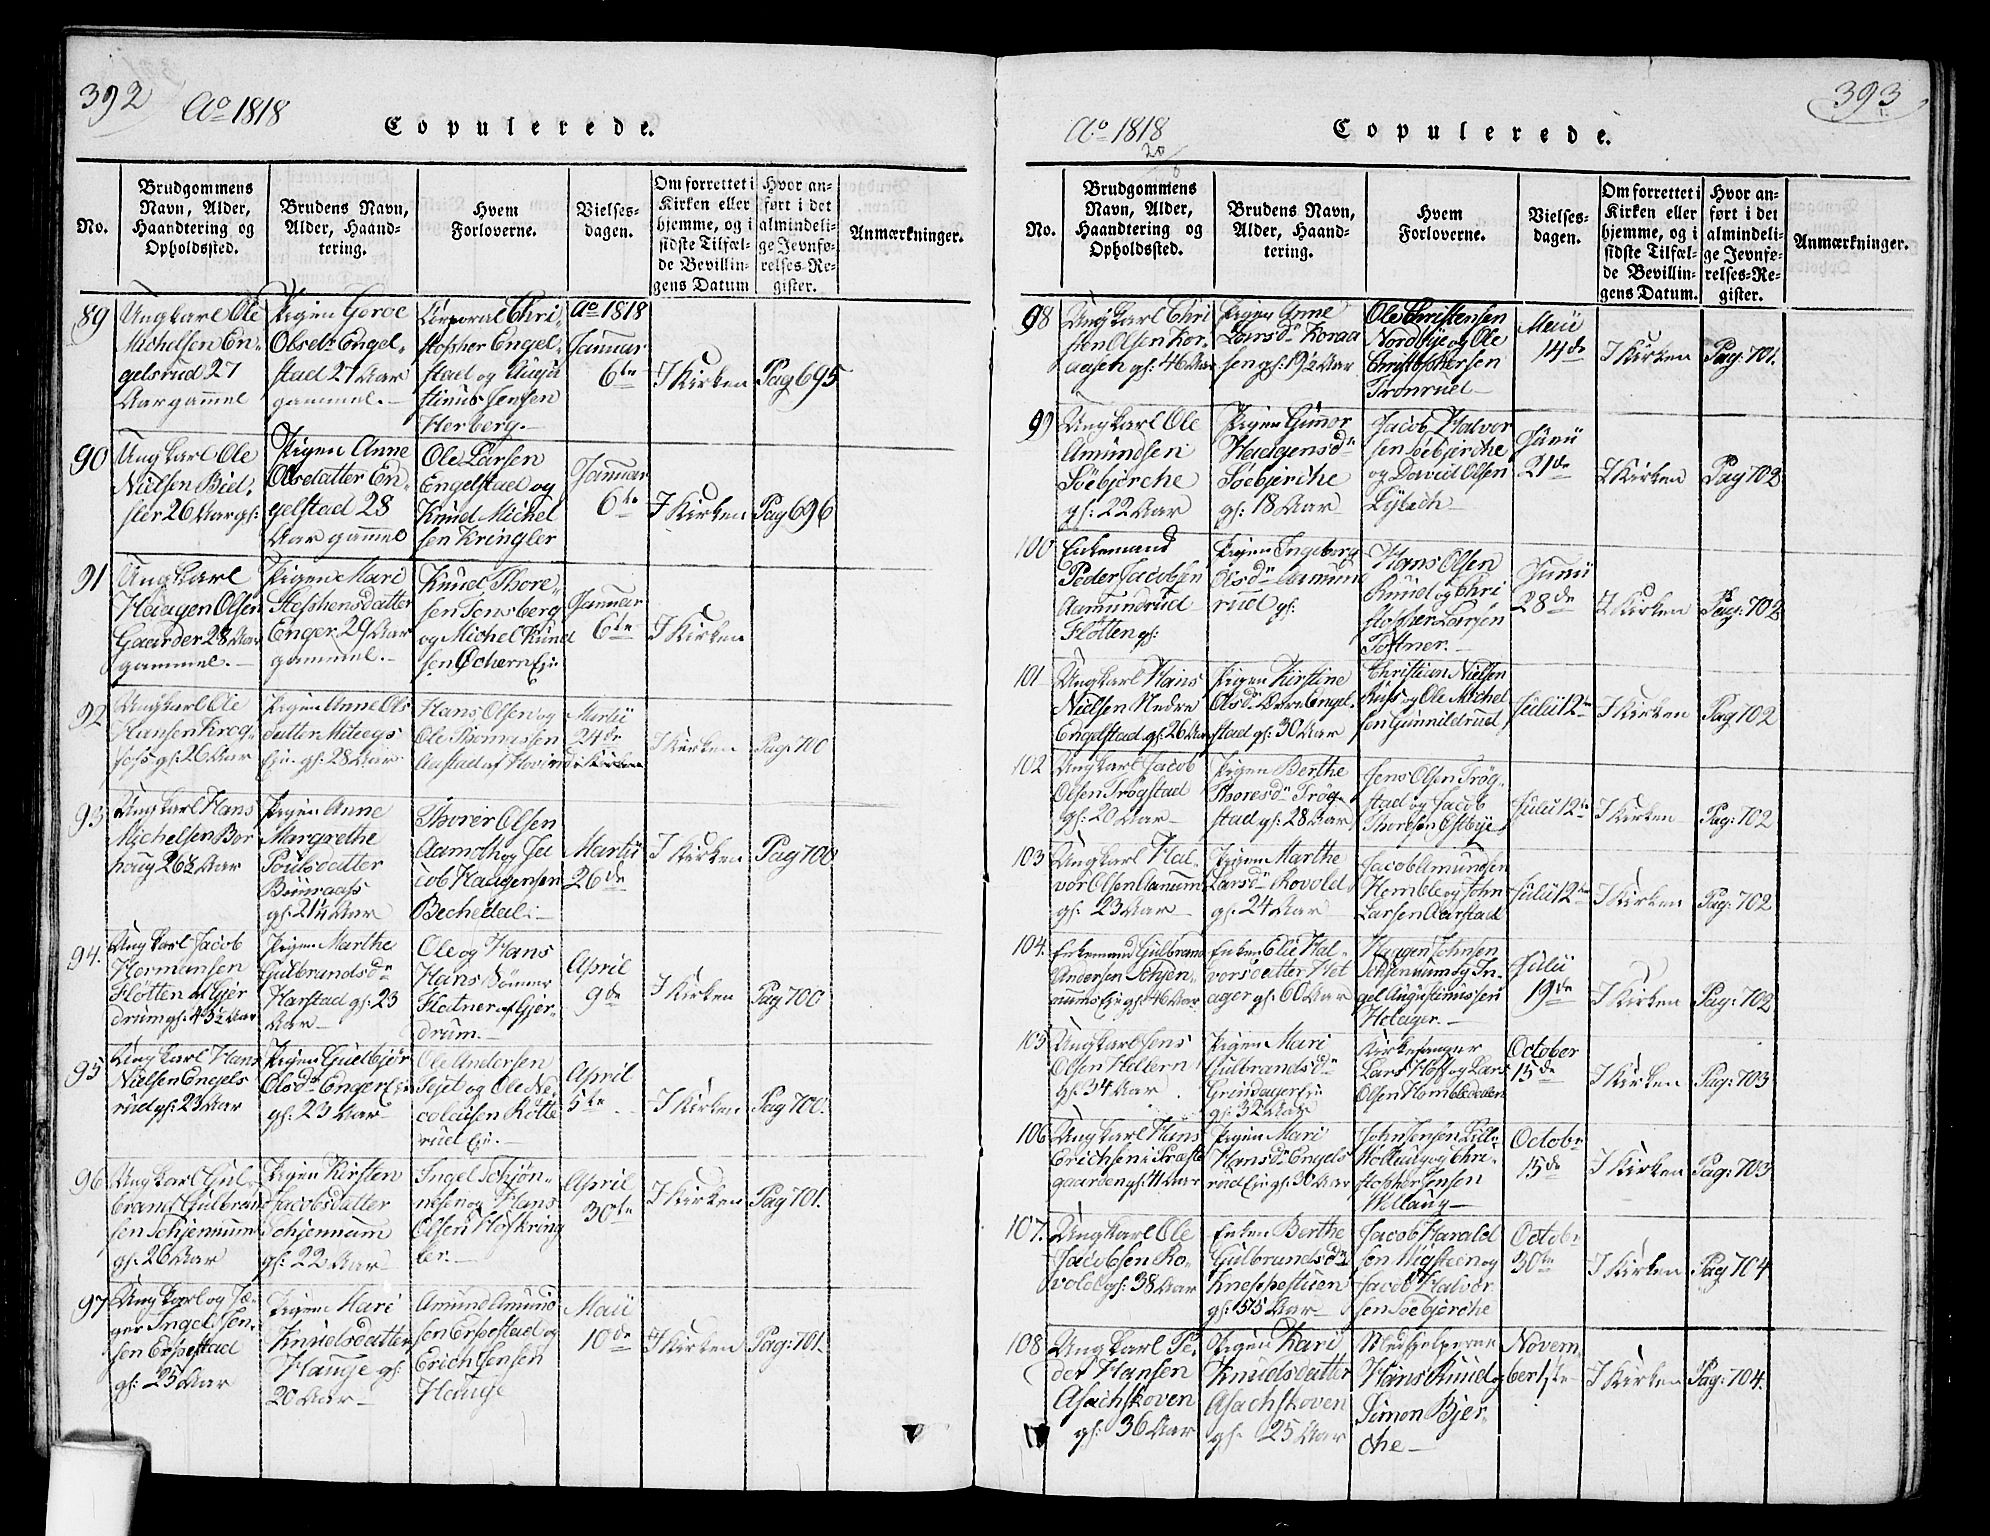 392
Ao 1818
Copulerede.
No.
Brudgommens Navn, Alder, Haandtering og Opholdssted.
Brudens Navn, Alder, Haandtering.
Hvem Forloverne.
Vielsesdagen.
Om forrettet i Kirken eller hjemme, og i sidste Tilfælde Bevillingens Datum
Hvor anført i det almindelige Jevnførelses-Register.
Anmærkninger.
89
Ungkarl Ole
Michelsen En-
gelsrud 27
Aar gammel
Pigen Goroe
Olsdr Engel-
stad 27 Aar
gammel.
Corporal Chri-
stopher Engel-
stad og Augu
stinus Jensen
Herberg.
Ao 1818
Januar
6te
I Kirken
Pag 695
90
Ungkarl Ole
Nielsen
26 Aar gl:
Pigen Anne
Olsdatter En-
gelstad 28
Aar gammel
Ole Larsen
Engelstad og
Knud Michel
sen Kringler
Januar
6te
I Kirken
Pag 696
91
Ungkarl
Haagen Olsen
Gaarder 28 Aar
gammel.
Pigen Mari
Stephensdatter
Enger 29 Aar
gammel.
Knud Thore-
sen Tonsberg
og Michel Knud
sen Ochern Eie
Januar
6te
I Kirken
92
Ungkarl Ole
Hansen Krog-
foss gl: 26 Aar
Pigen Anne Ols
datter
Eie gl: 28 Aar
Hans Olsen og
Ole Thomassen
Aastad af Hovind
Martii
24de
I Kirken
Pag: 700
93
Ungkarl Hans
Michelsen Bor
houg 26½ Aar
Pigen Anne
Margrethe
Poulsdatter
gl: 21¼ Aar
Thorer Olsen
Aamoth og Ja
cob Haagensen
Bechedal
Martii
26de
I Kirken
Pag 700
94.
Ungkarl Jacob
Hermansen
Fløtten af Gjer
drum gl: 45½ Aar
Pigen Marthe
Gulbrandsdr
Harstad gl: 23
Aar
Ole og Hans
Hans Sønner
Flatner af Gjer-
drum.
April
9de
I Kirken
Pag 700
95
Ungkarl Hans
Nielsen Engels
rud gl: 23 Aar
Pigen Guelbjør
Olsdr Enger Eie
gl: 23 Aar
Ole Andersen
Sejet og Ole Ni-
colaisen Rotte
rud Eie.
April
5te
I Kirken
Pag 700.
96
Ungkarl Gul-
brand Gulbrand
sen Schjennum
gl: 26 Aar
Pigen Kirsten
Jacobsdatter
Schjennum
gl: 22 Aar
Ingel Schjøn-
nesen og Hans
Olsen Høfkring
ler.
April
30te
I Kirken
Pag 701.
97
Ungkarl og Jæ-
ger Ingel Jen-
sen Erpestad
gl: 25 Aar
Pigen Mari
Knudsdatter
Hauje gl:
20 Aar
Amund Amund
sen Erpestad og
Erich Jensen
Hauge
Maii
10de
I Kirken
Pag: 701.
393
Ao 1818
Copulerede.
No.
Brudgommens Navn, Alder, Haandtering og Opholdssted.
Brudens Navn, Alder, Haandtering.
Hvem Forloverne.
Vielsesdagen.
Om forrettet i Kirken eller hjemme, og i sidste Tilfælde Bevillingens Datum.
Hvor anført i det almindelige Jevnførelses-Register.
Anmærkninger.
98
Ungkarl Chri
sten Olsen Kor-
aasen gl: 46 Aar
Pigen Anne
Larsdr Koraa
sen gl: 19½ Aar
Ole Christensen
Nordbye og Ole
Christophersen
Tronrud
Maii
14de
I Kirken
Pag: 701.
99
Ungkarl Ole
Amundsen
Søebjerche
gl: 22 Aar
Pigen Gunnor
Haagensdr
Søebjerche
gl: 18 Aar
Jacob Halvor
sen Søebjerche
og David Olsen
Junii
21de
I Kirken
Pag 702
100
Enkemand
Peder Jacobsen
Aamundrud
Fløtten gl:
Pigen Ingeborg
Olsdr Aamund
rud gl:
Hans Olsen
Knud og Chri
stopher Larsen
Tottner.
Junii
28de
I Kirken
Pag: 702
101
Ungkarl Hans
Nielsen Nedre
Engelstad gl: 26 Aar
Pigen Kirstine
Olsdr Øvre Engel-
stad gl: 30 Aar
Christian Nielsen
Russ og Ole Michel
sen Gunnildrud
Julii 12te
I Kirken
Pag 702
102
Ungkarl Jacob
Olsen Trøgstad
gl: 20 Aar
Pigen Berthe
Thoresdr Trøg-
stad gl: 28 Aar
Jens Olsen Trøg-
stad og Jacob
Thoresen Estbye
Julii 12te
I Kirken
Pag: 702
103
Ungkarl Hal-
vor Olsen Aanum
gl: 23 Aar
Pigen Marthe
Larsdr Rovold
gl: 24 Aar
Jacob Amundsen
Homble og John
Larsen Aarstad
Julii 12te
I Kirken
Pag: 702
104.
Enkemand Gulbrand
Andersen Schjen-
nums Eie gl: 46 Aar
Enken Elie Hal-
vorsdatter Hol
ager gl: 60 Aar
Haagen Johnsen
Schennum og In-
gel Augustinussen
Holager.
Julii
19de
I Kirken
Pag: 702
105
Ungkarl Jens
Olsen Hellern
gl: 34 Aar
Pigen Mari
Gulbrandsdr
Grindager Eie
gl: 32 Aar
Kirkesanger
Lars Hoff og Lars
Olsen Hombledalen
October
15de
I Kirken
Pag: 703
106
Ungkarl Hans
Erichsen i Præste
gaarden gl: 41 Aar
Pigen Mari
Hansdr Engels
rud Eie gl: 30 Aar
John Jensen Lill-
Møllaug og Chri-
stopher Jensen
Møllaug
Octobr
15de
I Kirken
Pag: 703
107.
Ungkarl Ole
Jacobsen Ro-
vold gl: 38 Aar
Enken Berthe
Gulbrandsdr
Kneppestuen
gl: 55 Aar
Jacob Harald
sen Møgsteen og
Jacob Halvor
sen Søebjerche
Octobr
30te
I Kirken
Pag 704
108
Ungkarl Pe-
der Hansen
Asachskoven
gl: 36 Aar
Pigen Kari
Knudsdatter
Asachskoven
gl. 25 Aar
Medhjelperne
Hans Knud og
Simon Bjer-
che
Novem-
ber 1ste
I Kirken
Pag: 704.